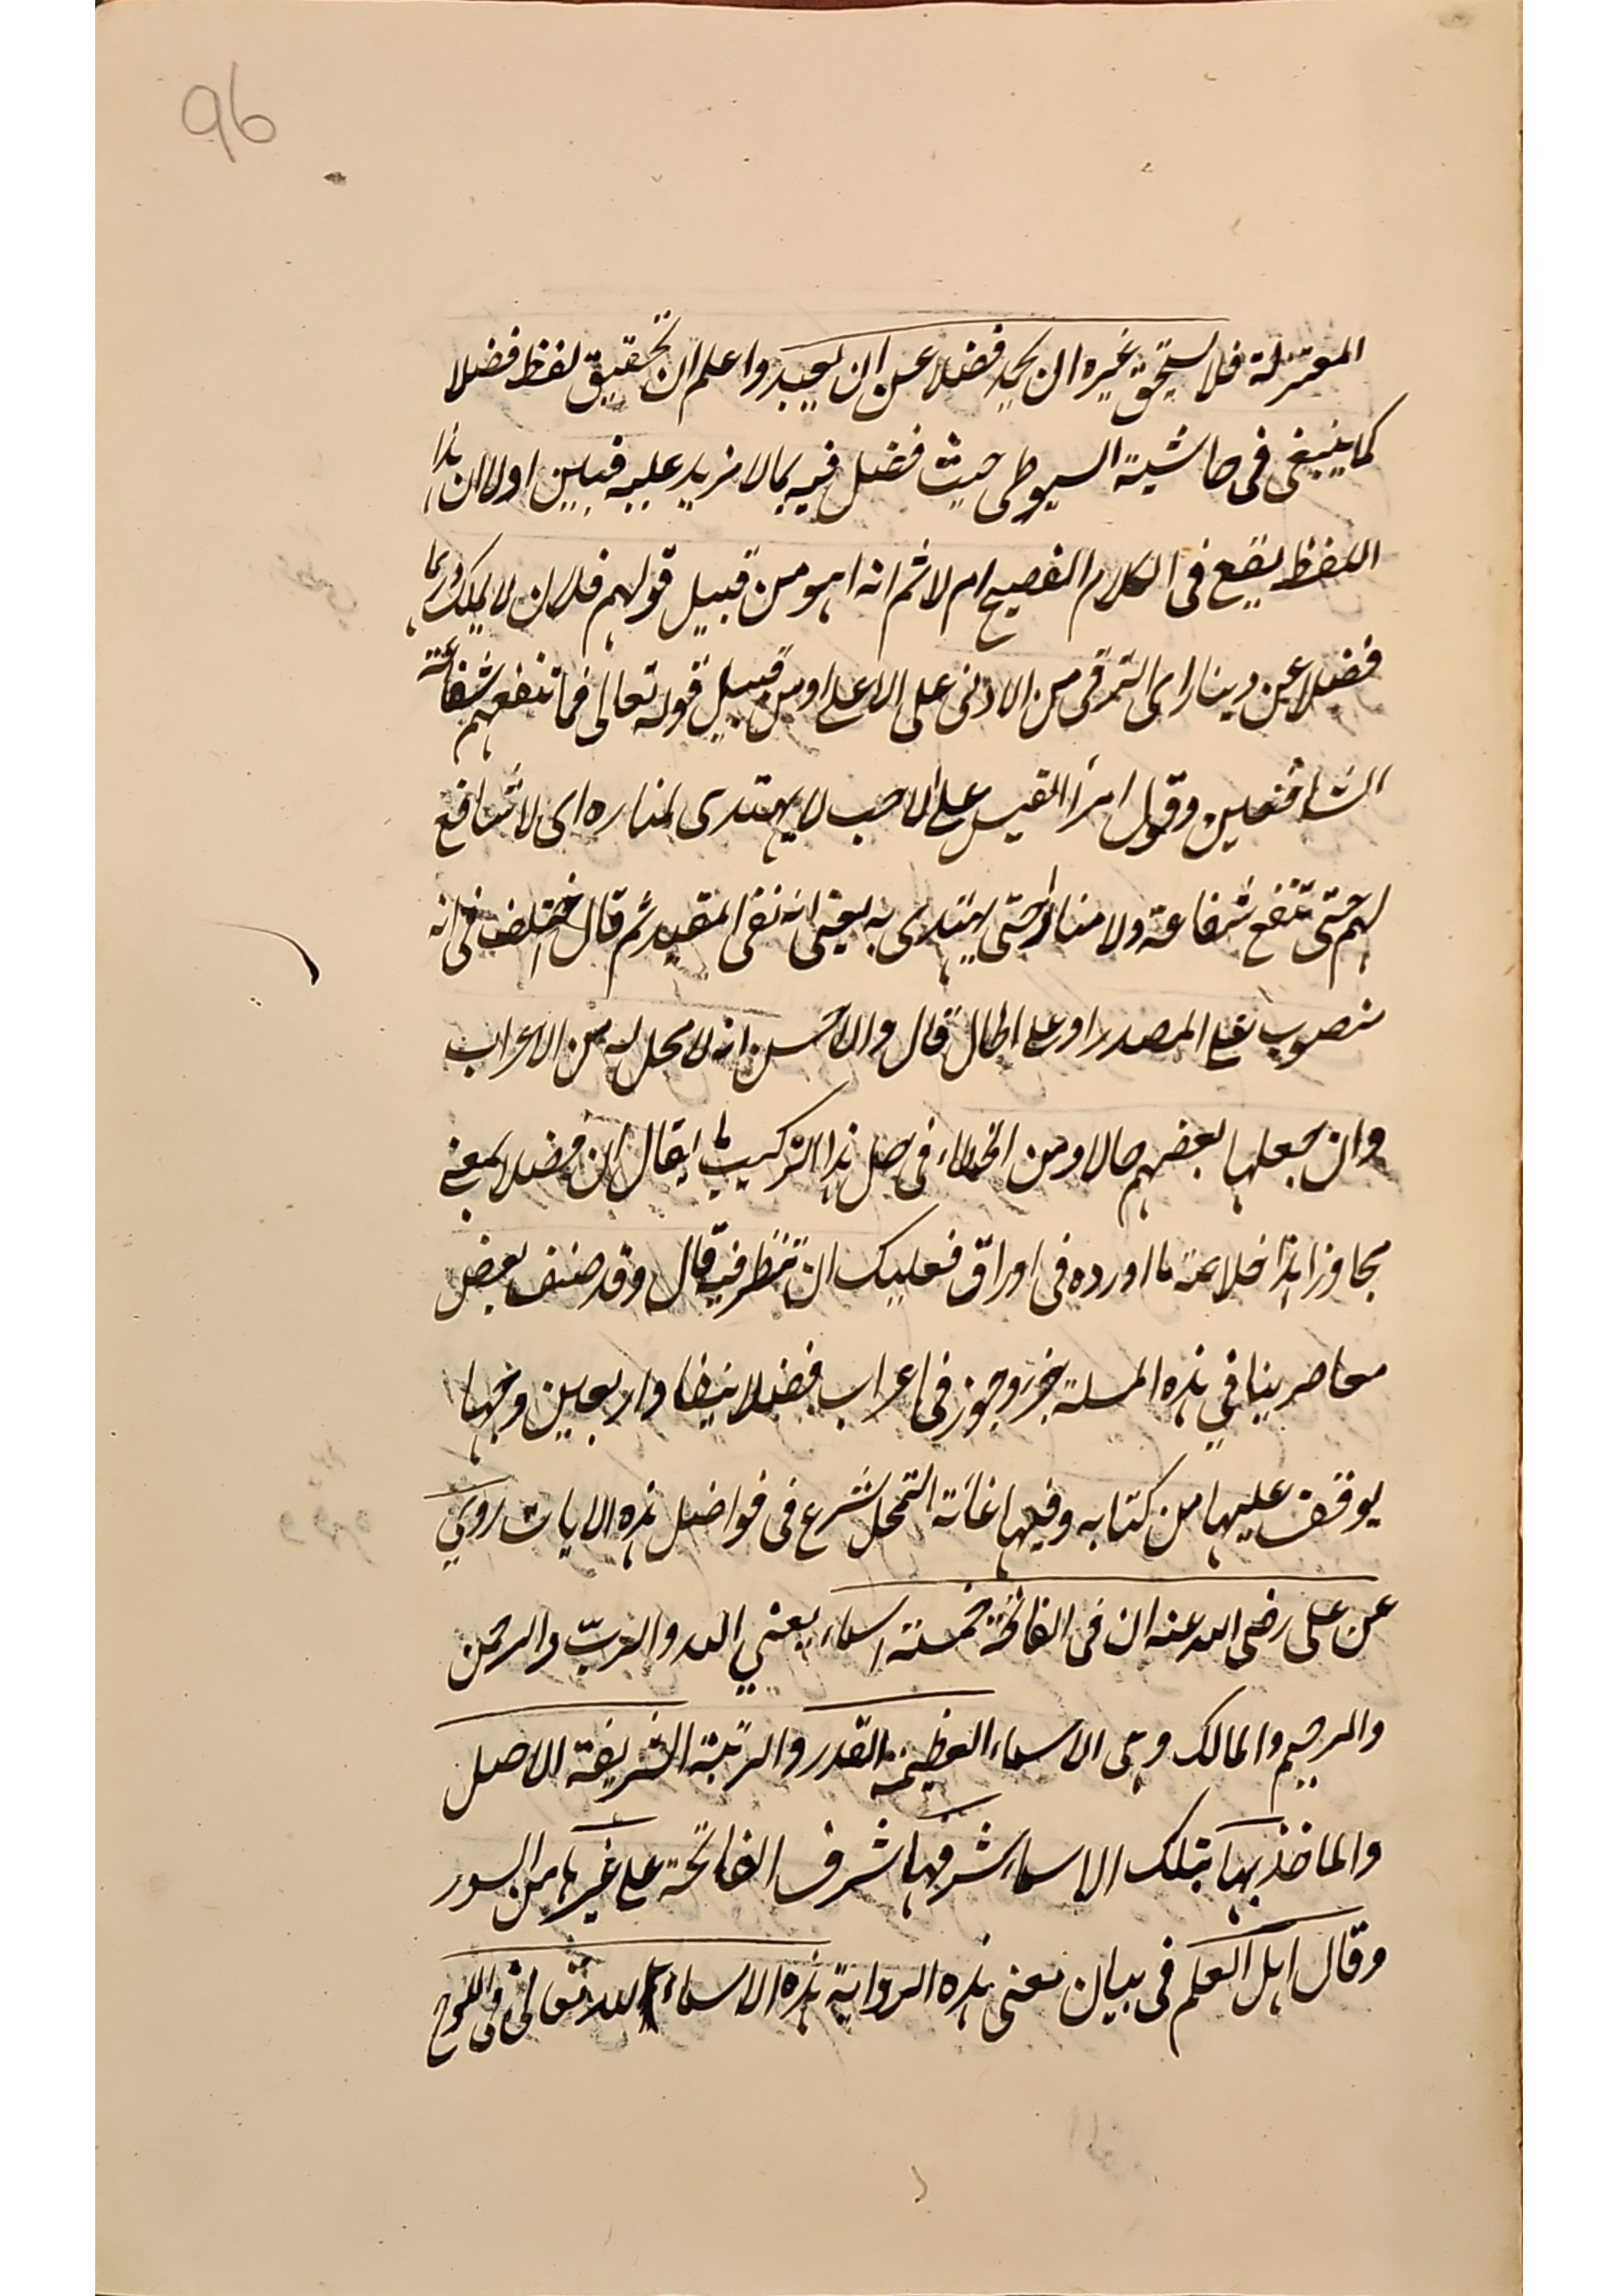 96
المعتزلة فلا يستحق غيره ان يحمد فضلا عن ان يعبد واعلم ان تحقيق لفظ فضلا
كما ينبغى فى حاشية السيوطى حيث فصل فيه بما لا مزيد عليه فبين اولا ان هذا
اللفظ يقع فى الكلام الفصيح ام لا ثم انه اهو من قبيل قولهم فلان لا يملك درهما
فضلا عن دينار اى الترقى من الادنى على الاعلى او من قبيل قوله تعالى فما تنفعهم شفاعة
الشافعين وقول امرأ القيس على لاحب لا يهتدى لمناره اى لا شافع
لهم حتى تنفع شفاعة ولا منار حتى يهتدى به يعنى انه نفى المقيد ثم قال اختلف فى انه
منصوب على المصدر او على الحال قال والاحسن انه لا محل له من الاعراب
وان جعلها بعضهم حالا ومن الخطاء فى حل هذا التركيب ما يقال ان فضلا بمعنى
مجاوزا هذا خلاصة ما اورده فى اوراق فعليك ان تنظر فيه قال وقد صنف بعض
معاصرينا في هذه المسلة جزء وجوز فى اعراب فضلا نيفا واربعين وجها
يوقف عليها من كتابه وفيها غاية التمحل شرع فى فواضل هذه الايات روي
عن على رضى الله عنه ان فى الفاتحة خمسة اسماء يعني الله والرب والرحمن
والرحيم والمالك وهى الاسماء العظيمة القدر والرتبة الشريفة الاصل
والماخذ بها بتلك الاسماء شرفها شرف الفاتحة على غيرها من السور
وقال اهل العلم فى بيان معنى هذه الرواية هذه الاسماء لله تعالى فى اللوح